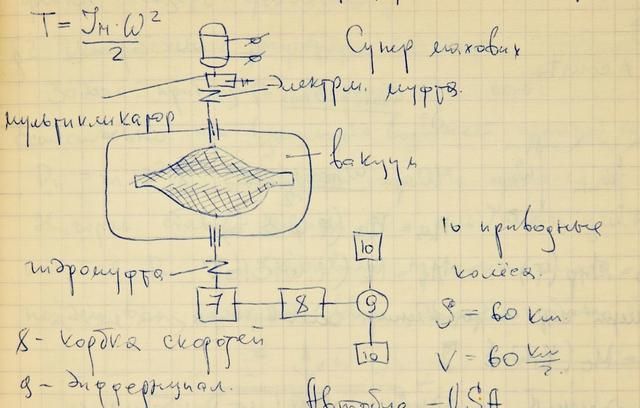 T = Jм·ω²
2
Супер маховик
Электрм. муфта.
мультипликатор
вакуум
10 приводные
колёса.
10
гидромуфта
7 8 9
S = 60 км
10
8 - коробка скоростей
V = 60 км/г.
9 - Дифференциал.
Автобус - USA